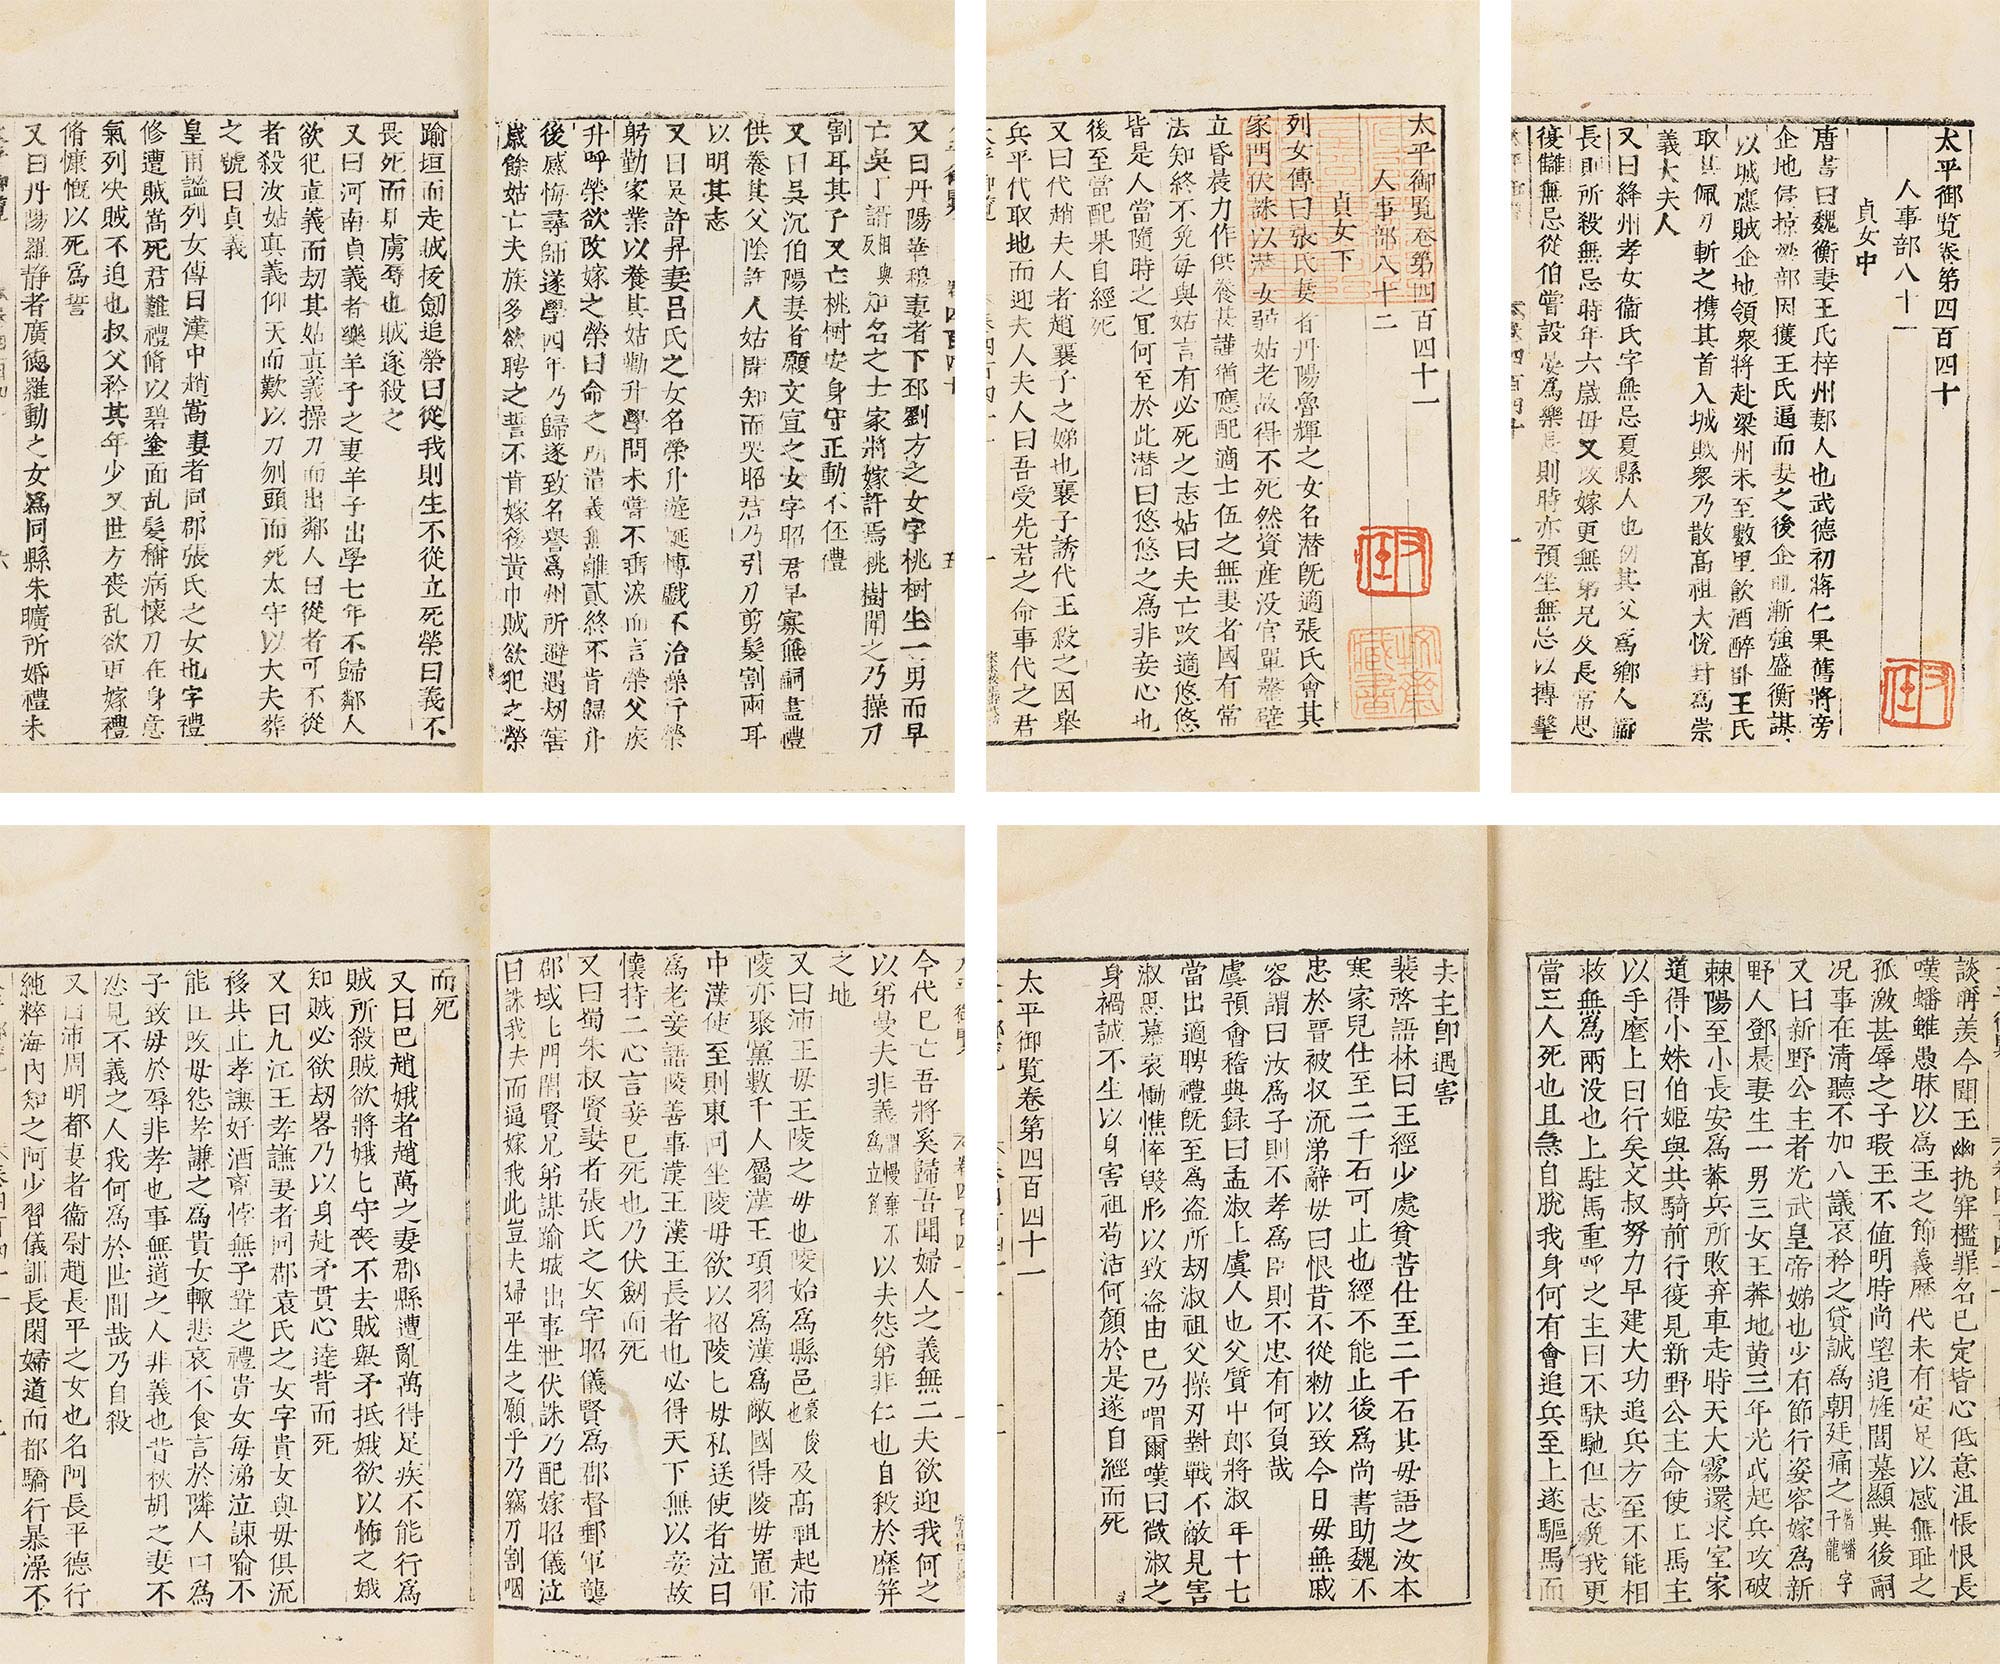 太平御覧卷第四百四十
人事部八十一
貞女中
唐書曰魏衡妻王氏梓州郪人也武德初薛仁果舊將旁
企地侵掠梁部因獲王氏逼而妻之後企地漸強盛衡謀
以城應賊企地領衆將赴梁州未至數里飲酒醉卧王氏
取其佩刀斬之携其首入城賊衆乃散髙祖大悅封為崇
義夫人
又曰絳州孝女衞氏字無忌夏縣人也初其父爲鄉人衞
長則所殺無忌時年六歳母又改嫁更無弟兄及長常思
復讎無忌從伯嘗設宴爲樂長則時亦預坐無忌以搏擊
太平御覧卷第四百四十一
人事部八十二
貞女下
列女傳曰張氏妻者丹陽魯輝之女名潜旣適張氏會其
家門伏誅以潜女弱姑老故得不死然資産没官單罄壁
立昏晨力作供養甚謹猶應配適士伍之無妻者國有常
法知終不免每與姑言有必死之志姑曰夫亡改適悠悠
皆是人當隨時之宜何至於此潜曰悠悠之爲非妾心也
後至當配果自經死
又曰代趙夫人者趙襄子之娣也襄子誘代王殺之因舉
兵平代取地而迎夫人夫人曰吾受先君之命事代之君
又曰丹陽華穆妻者下邳劉方之女字桃樹生一男而早
亡吳丁諝相與反知名之士家將嫁許焉桃樹聞之乃操刀
割耳其子又亡桃樹安身守正動不伾禮
又曰吳沉伯陽妻者願文宣之女字昭君早寡無嗣盡禮
供養其父陰許人姑聞知而哭昭君乃引刀剪髮割兩耳
以明其志
又曰吳許昇妻呂氏之女名榮升遊誕博戲不治操行榮
躬勤家業以養其姑勸升學問未嘗不垂淚而言榮父疾
升呼榮欲改嫁之榮曰命之所遭義無離貳終不肯歸升
後感悔尋師遂學四年乃歸遂致名譽爲州所避遇刼害
歳餘姑亡夫族多欲聘之誓不肯嫁後黃巾賊欲犯之榮
踰垣而走賊拔劍追榮曰從我則生不從立死榮曰義不
畏死而見虜辱也賊遂殺之
又曰河南貞義者樂羊子之妻羊子出學七年不歸鄰人
欲犯貞義而刧其姑貞義操刀而出鄰人曰從者可不從
者殺汝姑貞義仰天而歎以刀刎頭而死太守以大夫葬
之號曰貞義
皇甫謐列女傳曰漢中趙嵩妻者同郡張氏之女也字禮
修遭賊嵩死君難禮脩以碧塗面乱髮稱病懷刀在身意
氣列决賊不迫也叔父矜其年少又世方喪乱欲更嫁禮
脩慷慨以死爲誓
又曰丹陽羅静者廣德羅勤之女爲同縣朱曠所婚禮未
談稱羨今聞王幽執穽檻罪名已定皆心低意沮悵恨長
嘆蟠雖愚昧以爲玉之節義歷代未有定足以感無耻之
孤激甚辱之子瑕玉不值明時尚望追旌閭墓顯異後嗣
况事在清聽不加八議哀矜之貸誠爲朝廷痛之申屠蟠字子龍
又曰新野公主者光武皇帝娣也少有節行姿容嫁爲新
野人鄧晨妻生一男三女王莽地黄三年光武起兵攻破
棘陽至小長安爲莽兵所敗弃車走時天大霧還求室家
道得小姝伯姬與共騎前行復見新野公主命使上馬主
以手麾上曰行矣文叔努力早建大功追兵方至不能相
救無爲兩没也上駐馬重呼之主曰不駃馳但志兗我更
當三人死也且急自脫我身何有會追兵至上遂驅馬而
去主即遇害
裴啓語林曰王經少處貧苦仕至二千石其毋語之汝本
寒家兒仕至二千石可止也經不能止後爲尚書助魏不
忠於晋被収流涕辭毋曰恨昔不從勑以致今日毋無戚
容謂曰汝爲子則不孝爲臣則不忠有何負哉
虞預會稽典録曰孟淑上虞人也父質中郎將淑年十七
當出適聘禮旣至爲盗所刼淑祖父操刃對戰不敵見害
淑思慕哀慟憔悴毀形以致盗由已乃喟爾嘆曰微淑之
身禍誠不生以身害祖苟活何顔於是遂自經而死
太平御覧卷第四百四十一
今代已亡吾將奚歸吾聞婦人之義無二夫欲迎我何之
以弟曼夫非義謂慢棄不爲立節以夫怨弟非仁也自殺於靡笄
之地
又曰沛王毋王陵之毋也陵始爲縣邑豪俊也及髙祖起沛
陵亦聚黨數千人屬漢王項羽爲漢爲敵國得陵毋置軍
中漢使至則東向坐陵毋欲以招陵匕毋私送使者泣曰
爲老妾語陵善事漢王漢王長者也必得天下無以妾故
懷持二心言妾巳死也乃伏劒而死
又曰蜀朱叔賢妻者張氏之女字昭儀賢爲郡督郵軍龔
郡城上門閉賢兄弟謀踰城出事泄伏誅乃配嫁昭儀泣
曰誅我夫而逼嫁我此豈夫婦平生之願乎乃竊刀割咽
而死
又曰巴趙娥者趙萬之妻郡縣遭亂萬得足疾不能行爲
賊所殺賊欲將娥匕守喪不去賊舉矛抵娥欲以怖之娥
知賊必欲刧畧乃以身赴矛貫心達背而死
又曰九江王孝謙妻者同郡袁氏之女字貴女與毋俱流
移共止孝謙好酒齋悖無子聳之禮貴女每涕泣諫喻不
能止改毋怨孝謙之爲貴女輙悲哀不食言於隣人曰爲
子致毋於辱非孝也事無道之人非義也昔秋胡之妻不
忿見不義之人我何爲於世間哉乃自殺
又曰沛周明都妻者衞尉趙長平之女也名阿長平德行
純粹海內知之阿少習儀訓長閑婦道而都驕行暴澡不